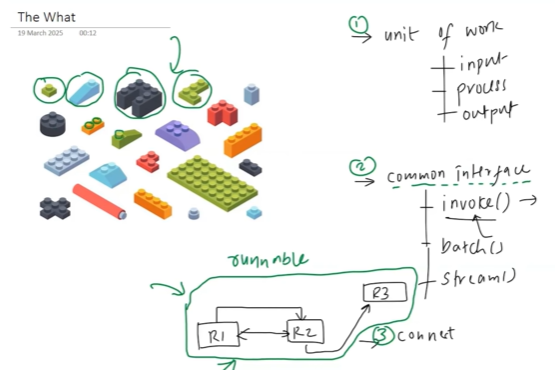 The What
19 March 2025 00:12
① unit of work
input
process
output
② common interface
invoke()
batch()
stream()
runnable
R1
R2
R3
③ connect